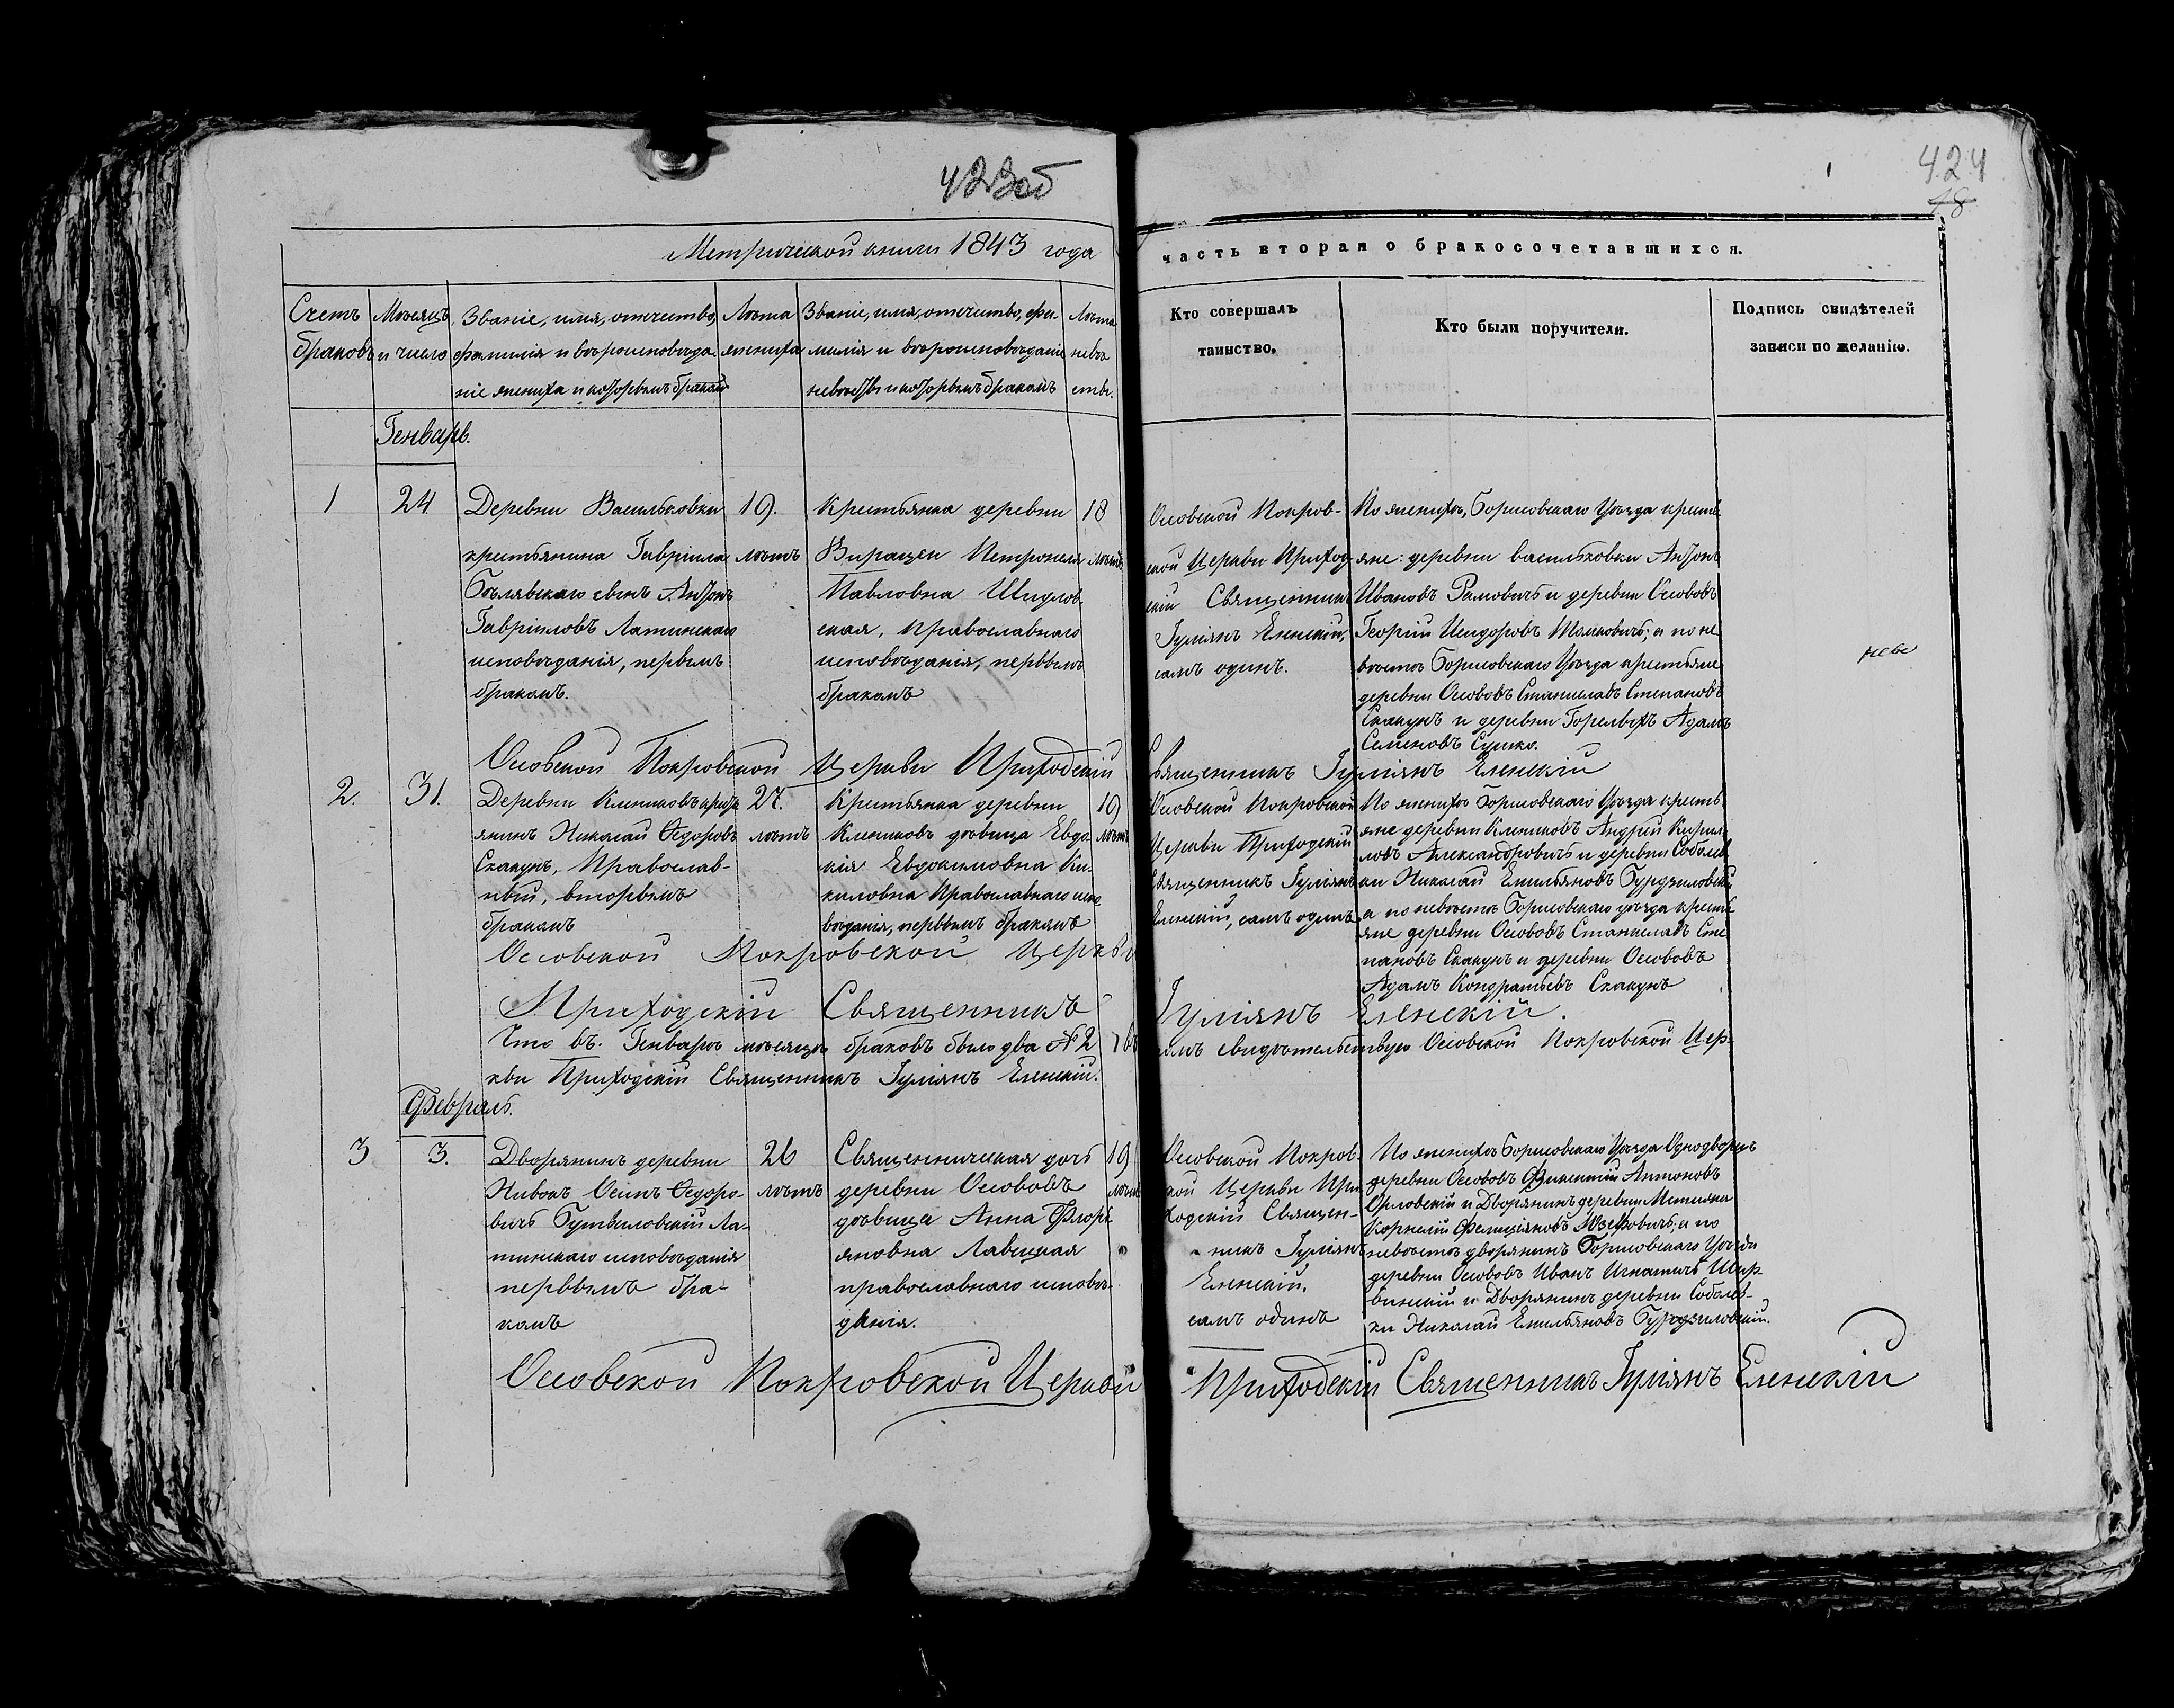 423об
424
18
Метрической книги 1843 года
часть вторая о бракосочетавшихся.
Счетъ браковъ
Мѣсяцъ и число
Званіе, имя, отчество,
фамилія и вѣроисповѣда-
ніе жениха и которымъ бракомъ
Лѣта
жениха
Званіе, имя, отчество, фа-
милія и вѣроисповѣданіе
невѣсты и которымъ бракомъ
Лѣта
невѣ
сты.
Кто совершалъ
таинство.
Кто были поручители.
Подпись свидѣтелей
записи по желанію.
Генварь.
1
24.
Деревни Васильковки
крестьянина Гавріила
Бѣлявскаго сынъ Антонъ
Гавріиловъ Латинскаго
исповѣданія, первымъ
бракомъ.
19.
лѣтъ
Крестьянка деревни
Петронеля
Павловна Шидлов-
ская, православнаго
исповѣданія, первымъ
бракомъ
18
лѣтъ
Осовской Покров-
ской Церкви Приход-
скій Священникъ
Іуліянъ Еленскій,
самъ одинъ.
По женихѣ, Борисовскаго Уѣзда кресть-
яне: деревни васильковки Антонъ
Ивановъ и деревни Осововъ
Георгій Исидоровъ а по не
вѣстѣ Борисовскаго Уѣзда крестьяне
деревни Осововъ Станиславъ Степановъ
Скакунъ и деревни Горелыхъ Адамъ
Семеновъ Сушко.
Осовской Покровской Церкви Приходскій Священникъ Іуліянъ Еленскій
2.
31.
Деревни Клениковъ кресть
янинъ Николай Ѳедоровъ
Скакунъ, Православ-
ный, вторымъ
бракомъ
27.
лѣтъ
Крестьянка деревни
Клениковъ дѣвица Евдо-
кія Евдокимовна Ки-
киловна Православнаго испо
вѣданія, первымъ бракомъ
19
лѣтъ
Осовской Покровской
Церкви Приходскій
Священникъ Іуліянъ
Еленскій, самъ одинъ
По женихѣ Борисовскаго Уѣзда кресть
яне деревни Клениковъ Андрей Кирил-
ловъ Александровичъ и деревни Соболев
ки Николай Емильяновъ Бурдзиловскій
а по невѣстѣ Борисовскаго уѣзда кресть
яне деревни Осововъ Станиславъ Сте
пановъ Скакунъ и деревни Осововъ
Адамъ Кондратьевъ Скакунъ
Осовской Покровской Церкви
Приходскій Священникъ Іуліянъ Еленскій.
Что въ Генварѣ мѣсяцѣ браковъ было два № 2 въ томъ свидѣтельствую Осовской Покровской Цер-
кви Приходскій Священникъ Іуліянъ Еленскій.
Февраль.
3
3.
Дворянинъ деревни
Нивокъ Осипъ Ѳедоро-
вичъ Бутвиловскій Ла-
тинскаго исповѣданія
первымъ бра-
комъ
26
лѣтъ
Священническая дочь
деревни Осововъ
дѣвица Анна Флорь
яновна Лавицкая
православнаго исповѣ-
данія.
19
лѣтъ
Осовской Покров-
ской Церкви При-
ходскій Священ-
никъ Іуліянъ
Еленскій.
самъ одинъ
По женихѣ Борисовскаго Уѣзда Однодворецъ
деревни Осововъ Антоновъ
Орловскій и Дворянинъ деревни
Корнелій Фелиціяновъ Юзефовичъ; а по
невѣстѣ дворянинъ Борисовскаго Уѣзда
деревни Осововъ Иванъ Игнатичъ Щер-
бинскій и Дворянинъ деревни Собалев-
ки Николай Емильяновъ Бурдзиловскій.
Осовской Покровской Церкви Приходскій Священникъ Іуліянъ Еленскій